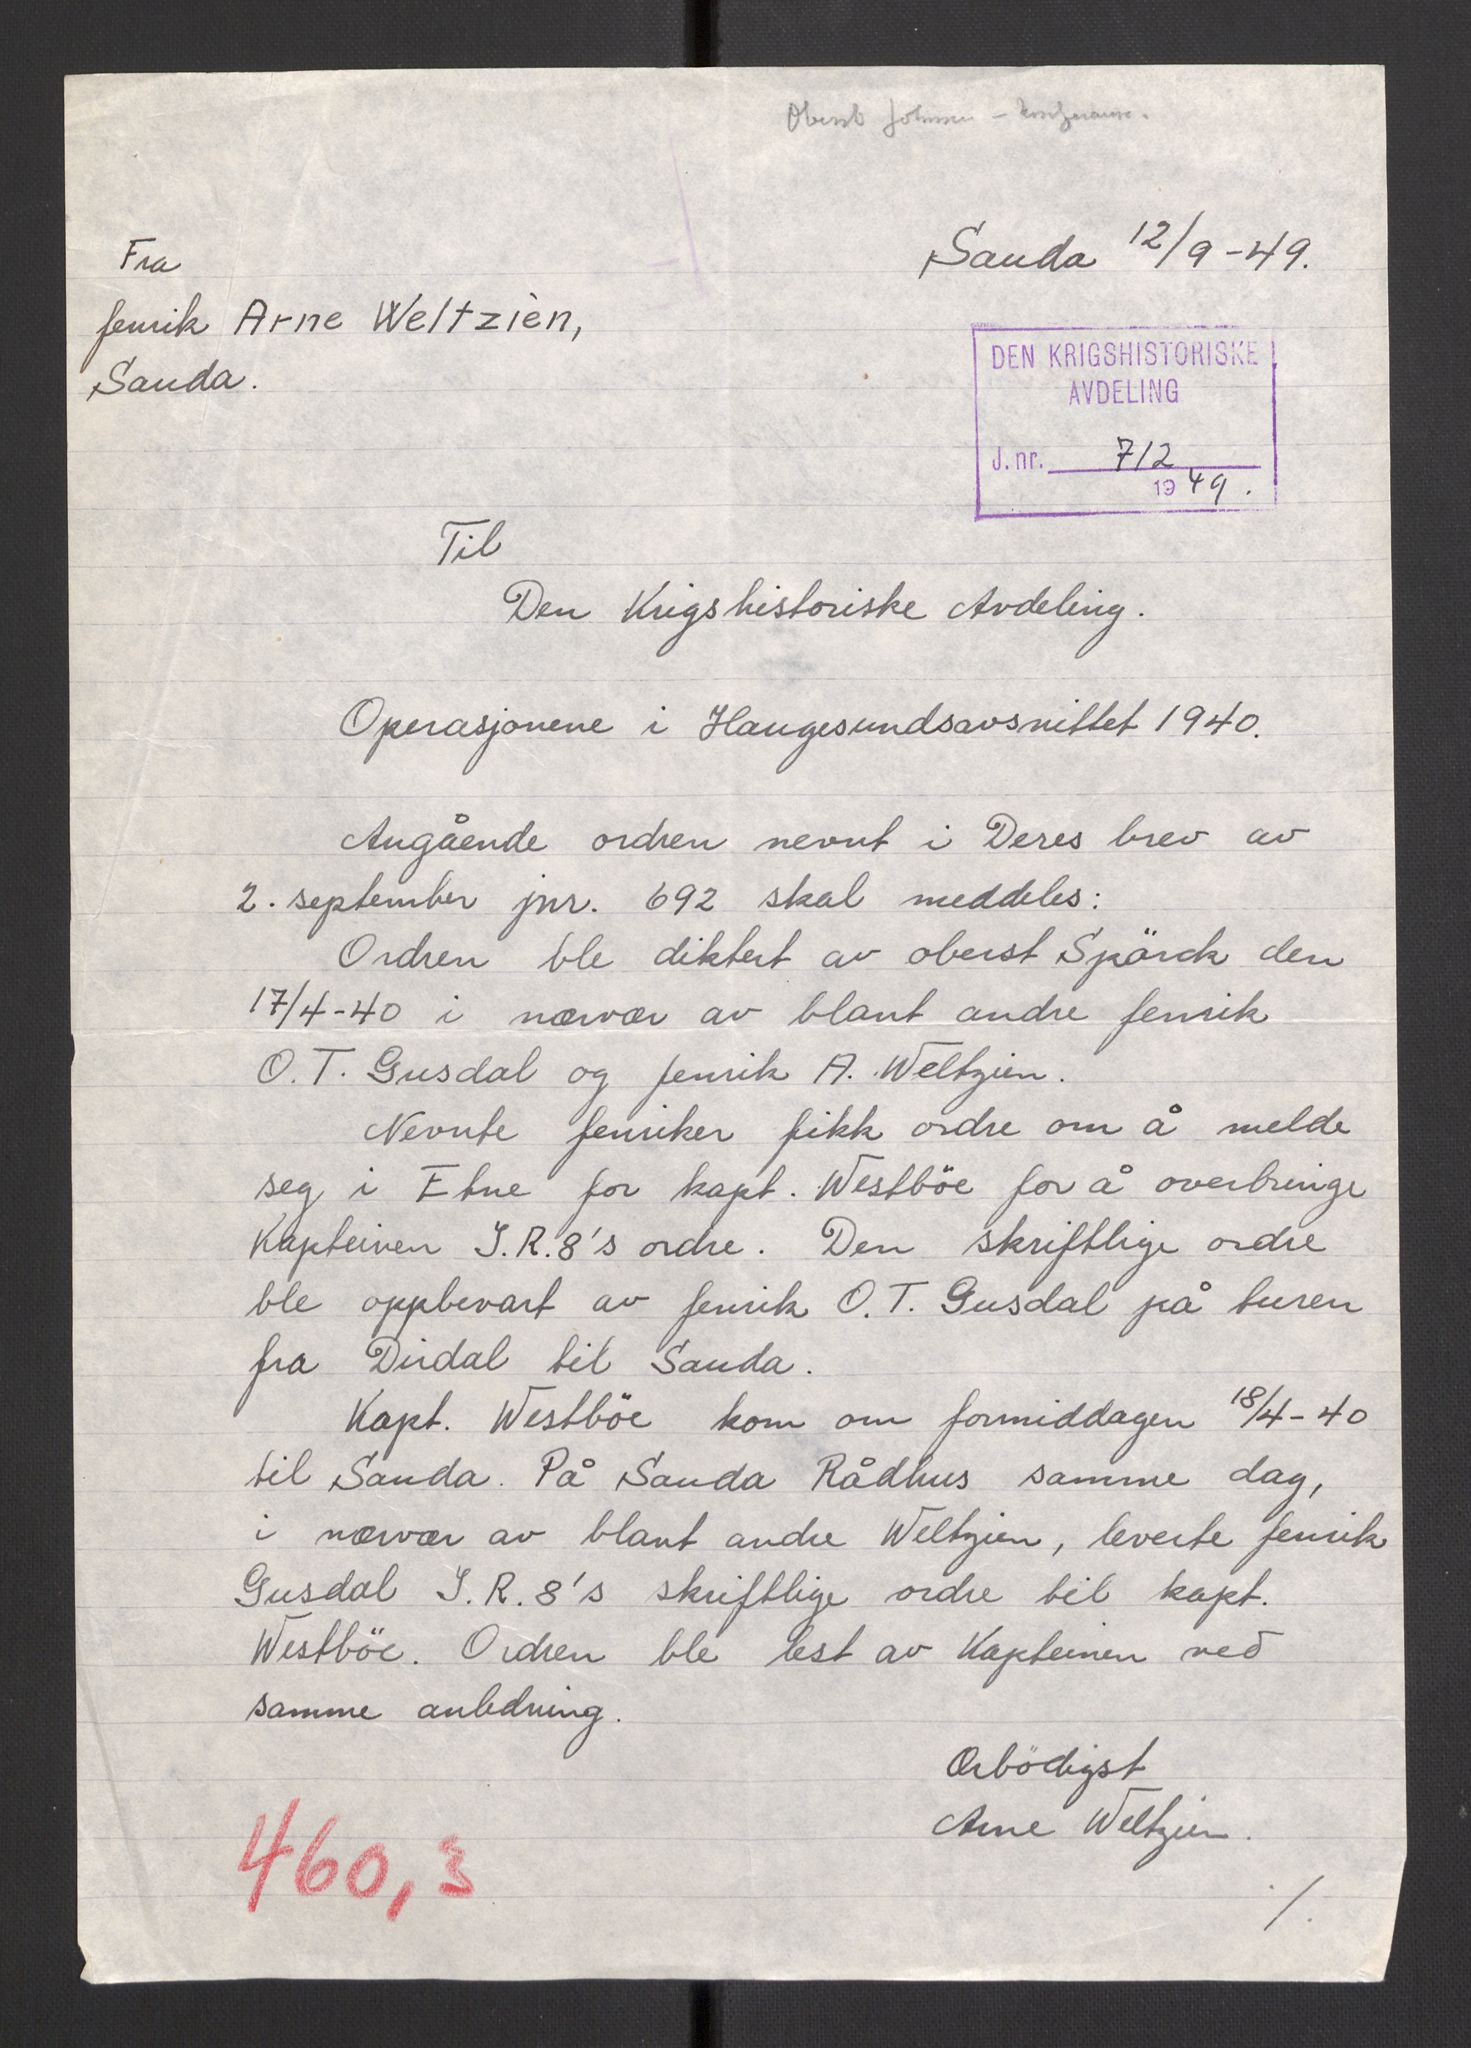 Oberst Johnsen -
Sauda 12/9-49.
Fra
fenrik Arne Weltzièn,
Sauda.
DEN KRIGSHISTORISKE
AVDELING
J. nr. 712
1949.
Til
Den Krigshistoriske Avdeling.
Operasjonene i Haugesundsavsnittet 1940.
Angående ordren nevnt i Deres brev av
2. september jnr. 692 skal meddeles:
Ordren ble diktert av oberst Spörck den
17/4-40 i nærvær av blant andre fenrik
O. T. Gusdal og fenrik A. Weltzien.
Nevnte fenriker fikk ordre om å melde
seg i Etne for kapt. Westböe for å overbringe
Kapteinen I.R.8's ordre. Den skriftlige ordre
ble oppbevart av fenrik O.T. Gusdal på turen
fra Dirdal til Sauda.
Kapt. Westböe kom om formiddagen 18/4-40
til Sauda. På Sauda Rådhus samme dag,
i nærvær av blant andre Weltzien, leverte fenrik
Gusdal I.R.8's skriftlige ordre til kapt.
Westböe. Ordren ble lest av Kapteinen ved
samme anledning.
Ærbödigst
Arne Weltzien.
460,3
./.